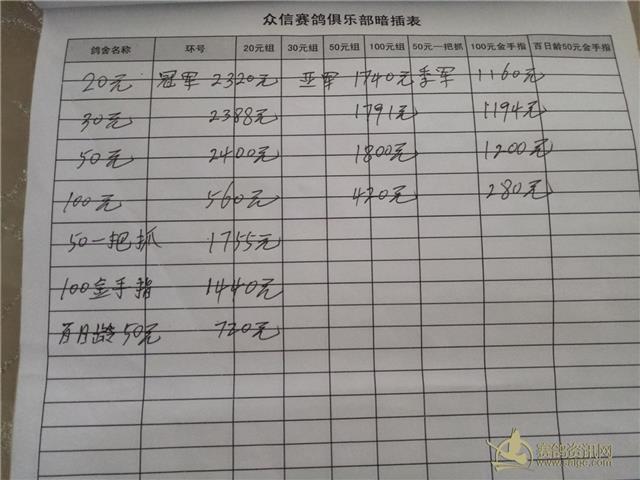 众信赛鸽俱乐部暗插表
鸽舍名称 环号 20元组 30元组 50元组 100元组 50元一把抓 100元金手指 百日龄50元金手指
20元 冠军 2320元 亚军 1740元 季军 1160元
30元 2388元 1791元 1194元
50元 2400元 1800元 1200元
100元 560元 420元 280元
50一把抓 1755元
100金手指 1440元
百日龄50元 720元
赛鸽资讯网
www.saige.com